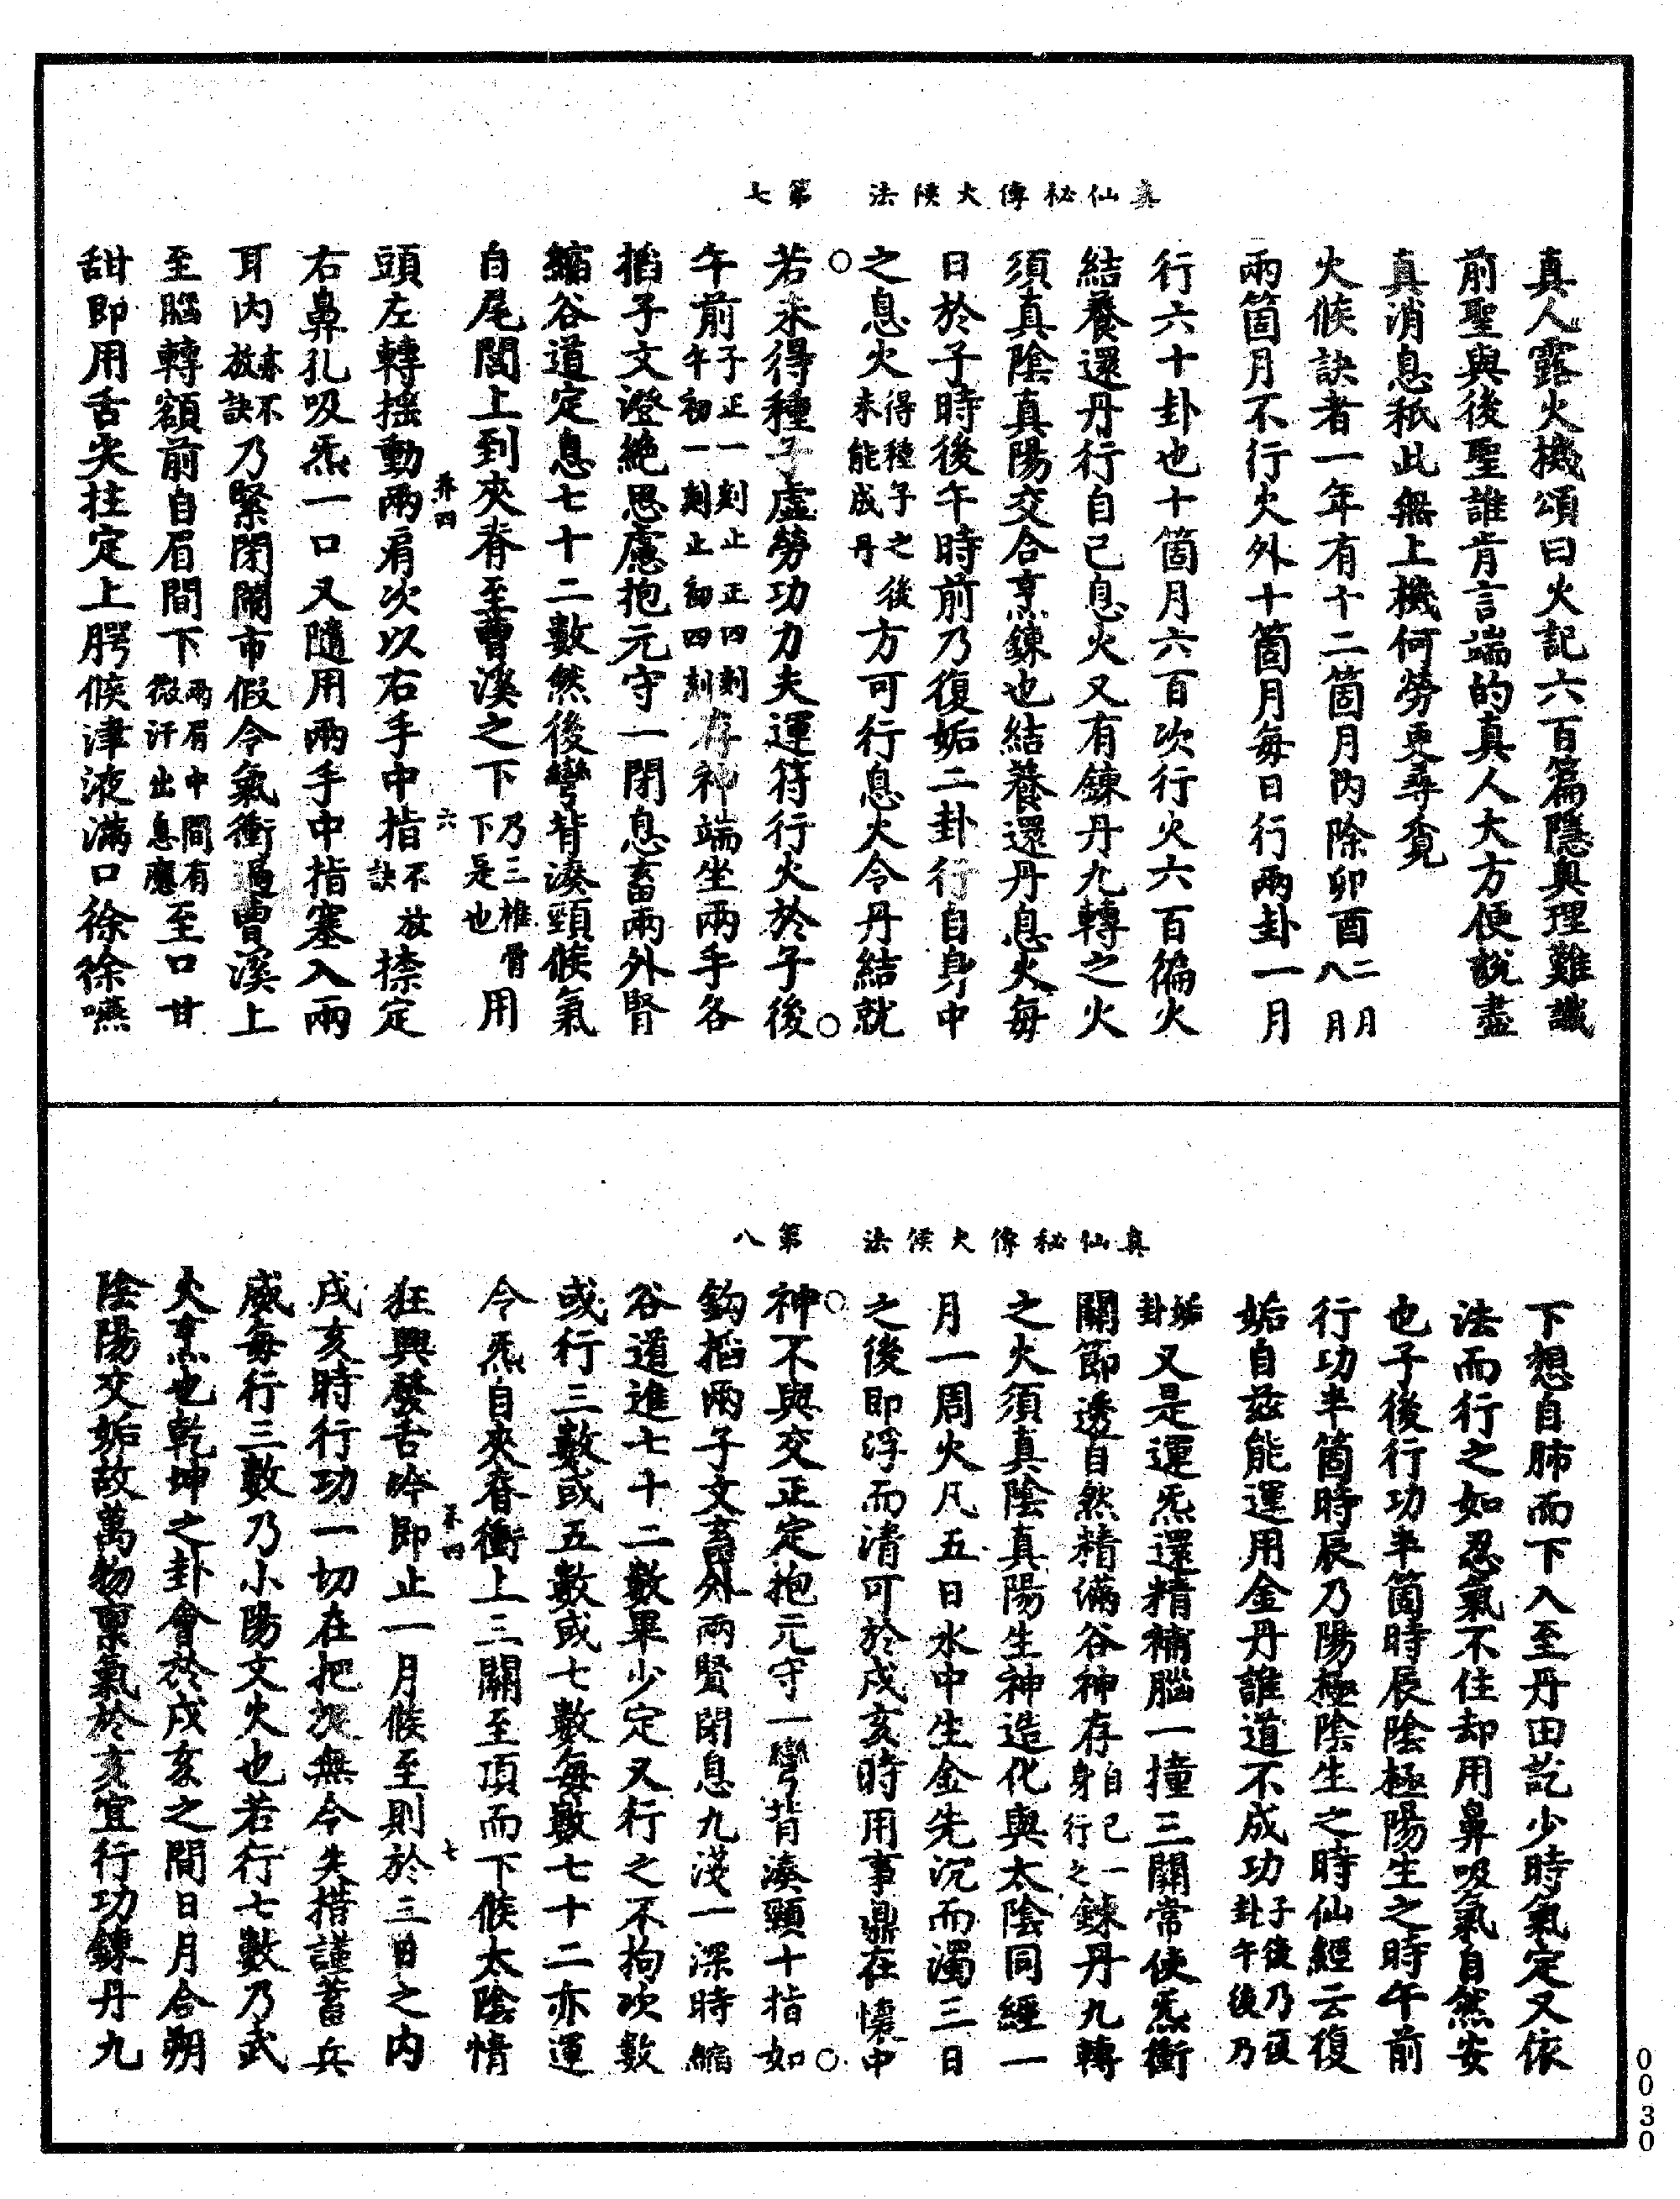 真仙秘傳火候法　第七
真人露火機頌曰火記六百篇隱奧理難識
前聖與後聖誰肯言端的真人大方便說盡
真消息秖此無上機何勞更尋覓
火候訣者一年有十二箇月內除卯酉二月八月
兩箇月不行火外十箇月每日行兩卦一月
行六十卦也十箇月六百次行火六百徧火
結養還丹行自己息火又有鍊丹九轉之火
須真陰真陽交合烹鍊也結養還丹息火每
日於子時後午時前乃復姤二卦行自身中
之息火得種子之後未能成丹方可行息火令丹結就
若未得種子虛勞功力夫運符行火於子後
午前子正一刻止正四刻午初一刻止初四刻存神端坐兩手各
搯子文澄絕思慮抱元守一閉息畜兩外腎
縮谷道定息七十二數然後彎背湊頸候氣
自尾閭上到夾脊至曹溪之下乃三椎骨下是也用
頭左轉搖動兩肩次以右手中指不放訣捺定
右鼻孔吸炁一口又隨用兩手中指塞入兩
耳內亦不放訣乃緊閉閙市假令氣衝過曹溪上
至腦轉額前自眉間下兩眉中間有微汗出息應至口甘
甜即用舌尖拄定上腭候津液滿口徐徐嚥
养四
六
真仙秘傳火候法　第八
下想自肺而下入至丹田訖少時氣定又依
法而行之如忍氣不住却用鼻吸氣自然安
也子後行功半箇時辰陰極陽生之時午前
行功半箇時辰乃陽極陰生之時仙經云復
姤自茲能運用金丹誰道不成功子後乃復卦午後乃
姤卦又是運炁還精補腦一撞三關常使炁衝
關節透自然精滿谷神存自己一身行之鍊丹九轉
之火須真陰真陽生神造化與太陰同經一
月一周火凡五日水中生金先沉而濁三日
之後即浮而清可於戌亥時用事鼎在懷中
神不與交正定抱元守一彎背湊頸十指如
鈎搯兩子文畜外兩腎閉息九淺一深時縮
谷道進七十二數畢少定又行之不拘次數
或行三數或五數或七數每數七十二亦運
令炁自夾脊衝上三關至頂而下候太陰情
狂興發舌吟即止一月候至則於三日之內
戌亥時行功一切在把捉無令失措謹蓄兵
威每行三數乃小陽文火也若行七數乃武
火烹也乾坤之卦會於戌亥之間日月合朔
陰陽交姤故萬物稟氣於亥宜行功鍊丹九
七
0030